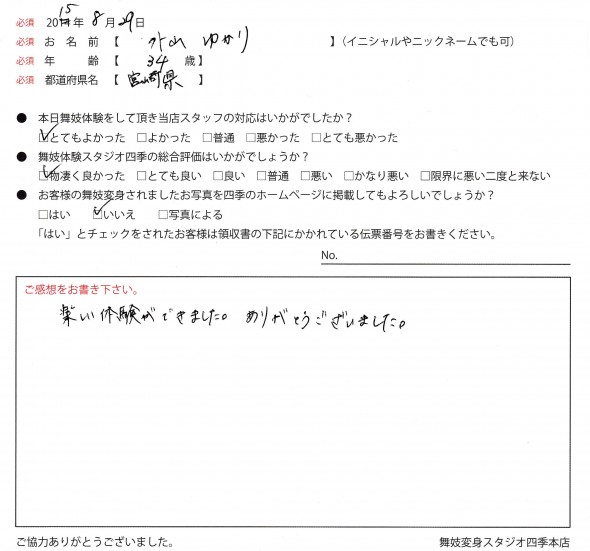 必須 2015年 8月 29日
必須 お 名 前 【 外山 ゆかり 】(イニシャルやニックネームでも可)
必須 年 齢 【 34 歳】
必須 都道府県名 【 宮崎県 】
● 本日舞妓体験をして頂き当店スタッフの対応はいかがでしたか?
☑とてもよかった □よかった □普通 □悪かった □とても悪かった
● 舞妓体験スタジオ四季の総合評価はいかがでしょうか?
☑物凄く良かった □とても良い □良い □普通 □悪い □かなり悪い □限界に悪い二度と来ない
● お客様の舞妓変身されましたお写真を四季のホームページに掲載してもよろしいでしょうか?
□はい ☑いいえ □写真による
「はい」とチェックをされたお客様は領収書の下記にかかれている伝票番号をお書きください。
No.
ご感想をお書き下さい。
楽しい体験ができました。 ありがとうございました。
ご協力ありがとうございました。 舞妓変身スタジオ四季本店